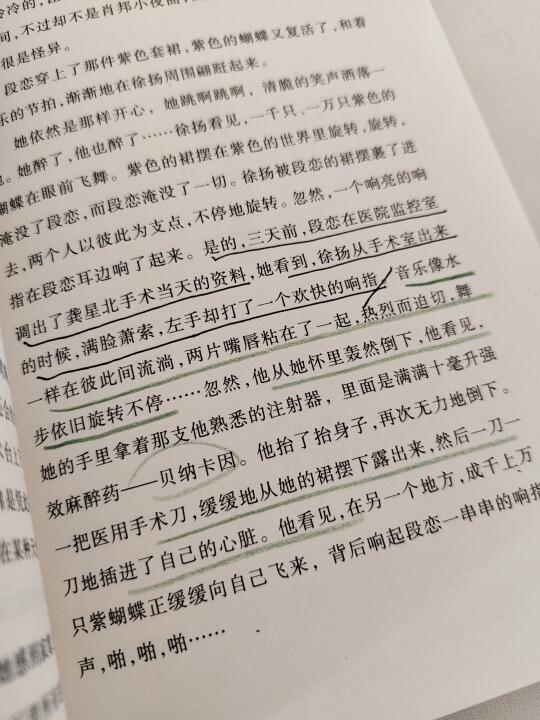 冷冷的，
间，不过却不是肖邦小夜曲，
很是怪异。
段恋穿上了那件紫色套裙，紫色的蝴蝶又复活了，和着
乐的节拍，渐渐地在徐扬周围翩跹起来。
她依然是那样开心，她跳啊跳啊，清脆的笑声洒落一
。她醉了，他也醉了……徐扬看见，一千只、一万只紫色的
蝴蝶在眼前飞舞。紫色的裙摆在紫色的世界里旋转，旋转，
淹没了段恋，而段恋淹没了一切。徐扬被段恋的裙摆裹了进
去，两个人以彼此为支点，不停地旋转。忽然，一个响亮的响
指在段恋耳边响了起来。是的，三天前，段恋在医院监控室
调出了龚星北手术当天的资料，她看到，徐扬从手术室出来
的时候，满脸萧索，左手却打了一个欢快的响指。音乐像水
一样在彼此间流淌，两片嘴唇粘在了一起，热烈而迫切，舞
步依旧旋转不停……忽然，他从她怀里轰然倒下，他看见，
她的手里拿着那支他熟悉的注射器，里面是满满十毫升强
效麻醉药——贝纳卡因。他抬了抬身子，再次无力地倒下。
一把医用手术刀，缓缓地从她的裙摆下露出来，然后一刀一
刀地插进了自己的心脏。他看见，在另一个地方，成千上万
只紫蝴蝶正缓缓向自己飞来，背后响起段恋一串串的响指
声，啪，啪，啪……